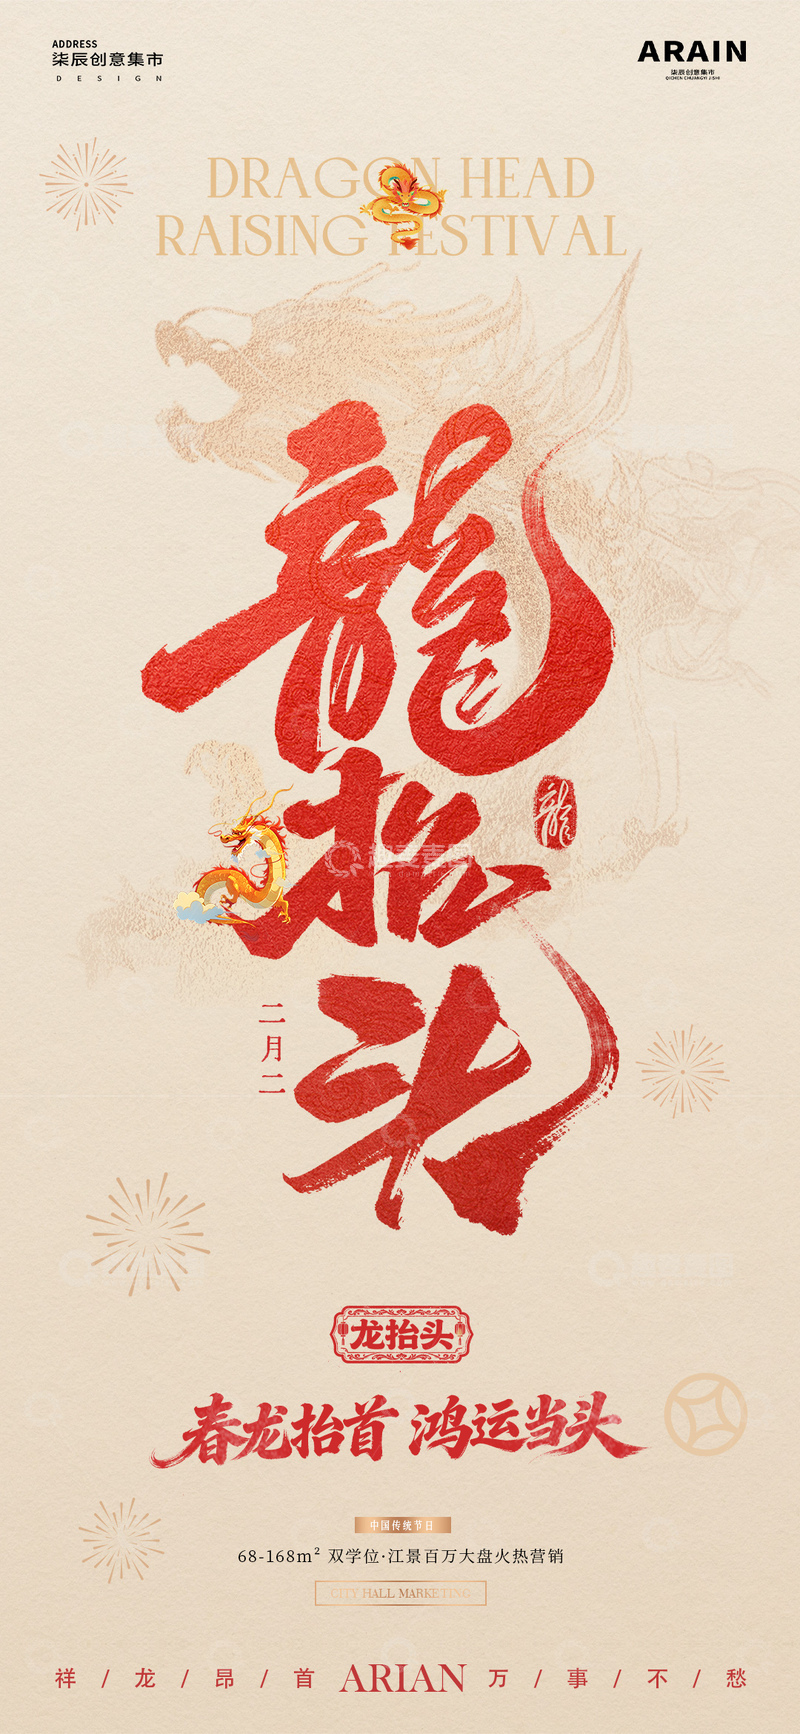 ADDRESS
柒辰创意集市
DESIGN
ARAIN
柒辰创意集市
QICHEN CHUANGYI JISHI
DRAGON HEAD
RAISING FESTIVAL
龍抬头
龍
二月二
龙抬头
春龙抬首 鸿运当头
中国传统节日
68-168m² 双学位·江景百万大盘火热营销
CITY HALL MARKETING
祥/龙/昂/首 ARIAN 万/事/不/愁